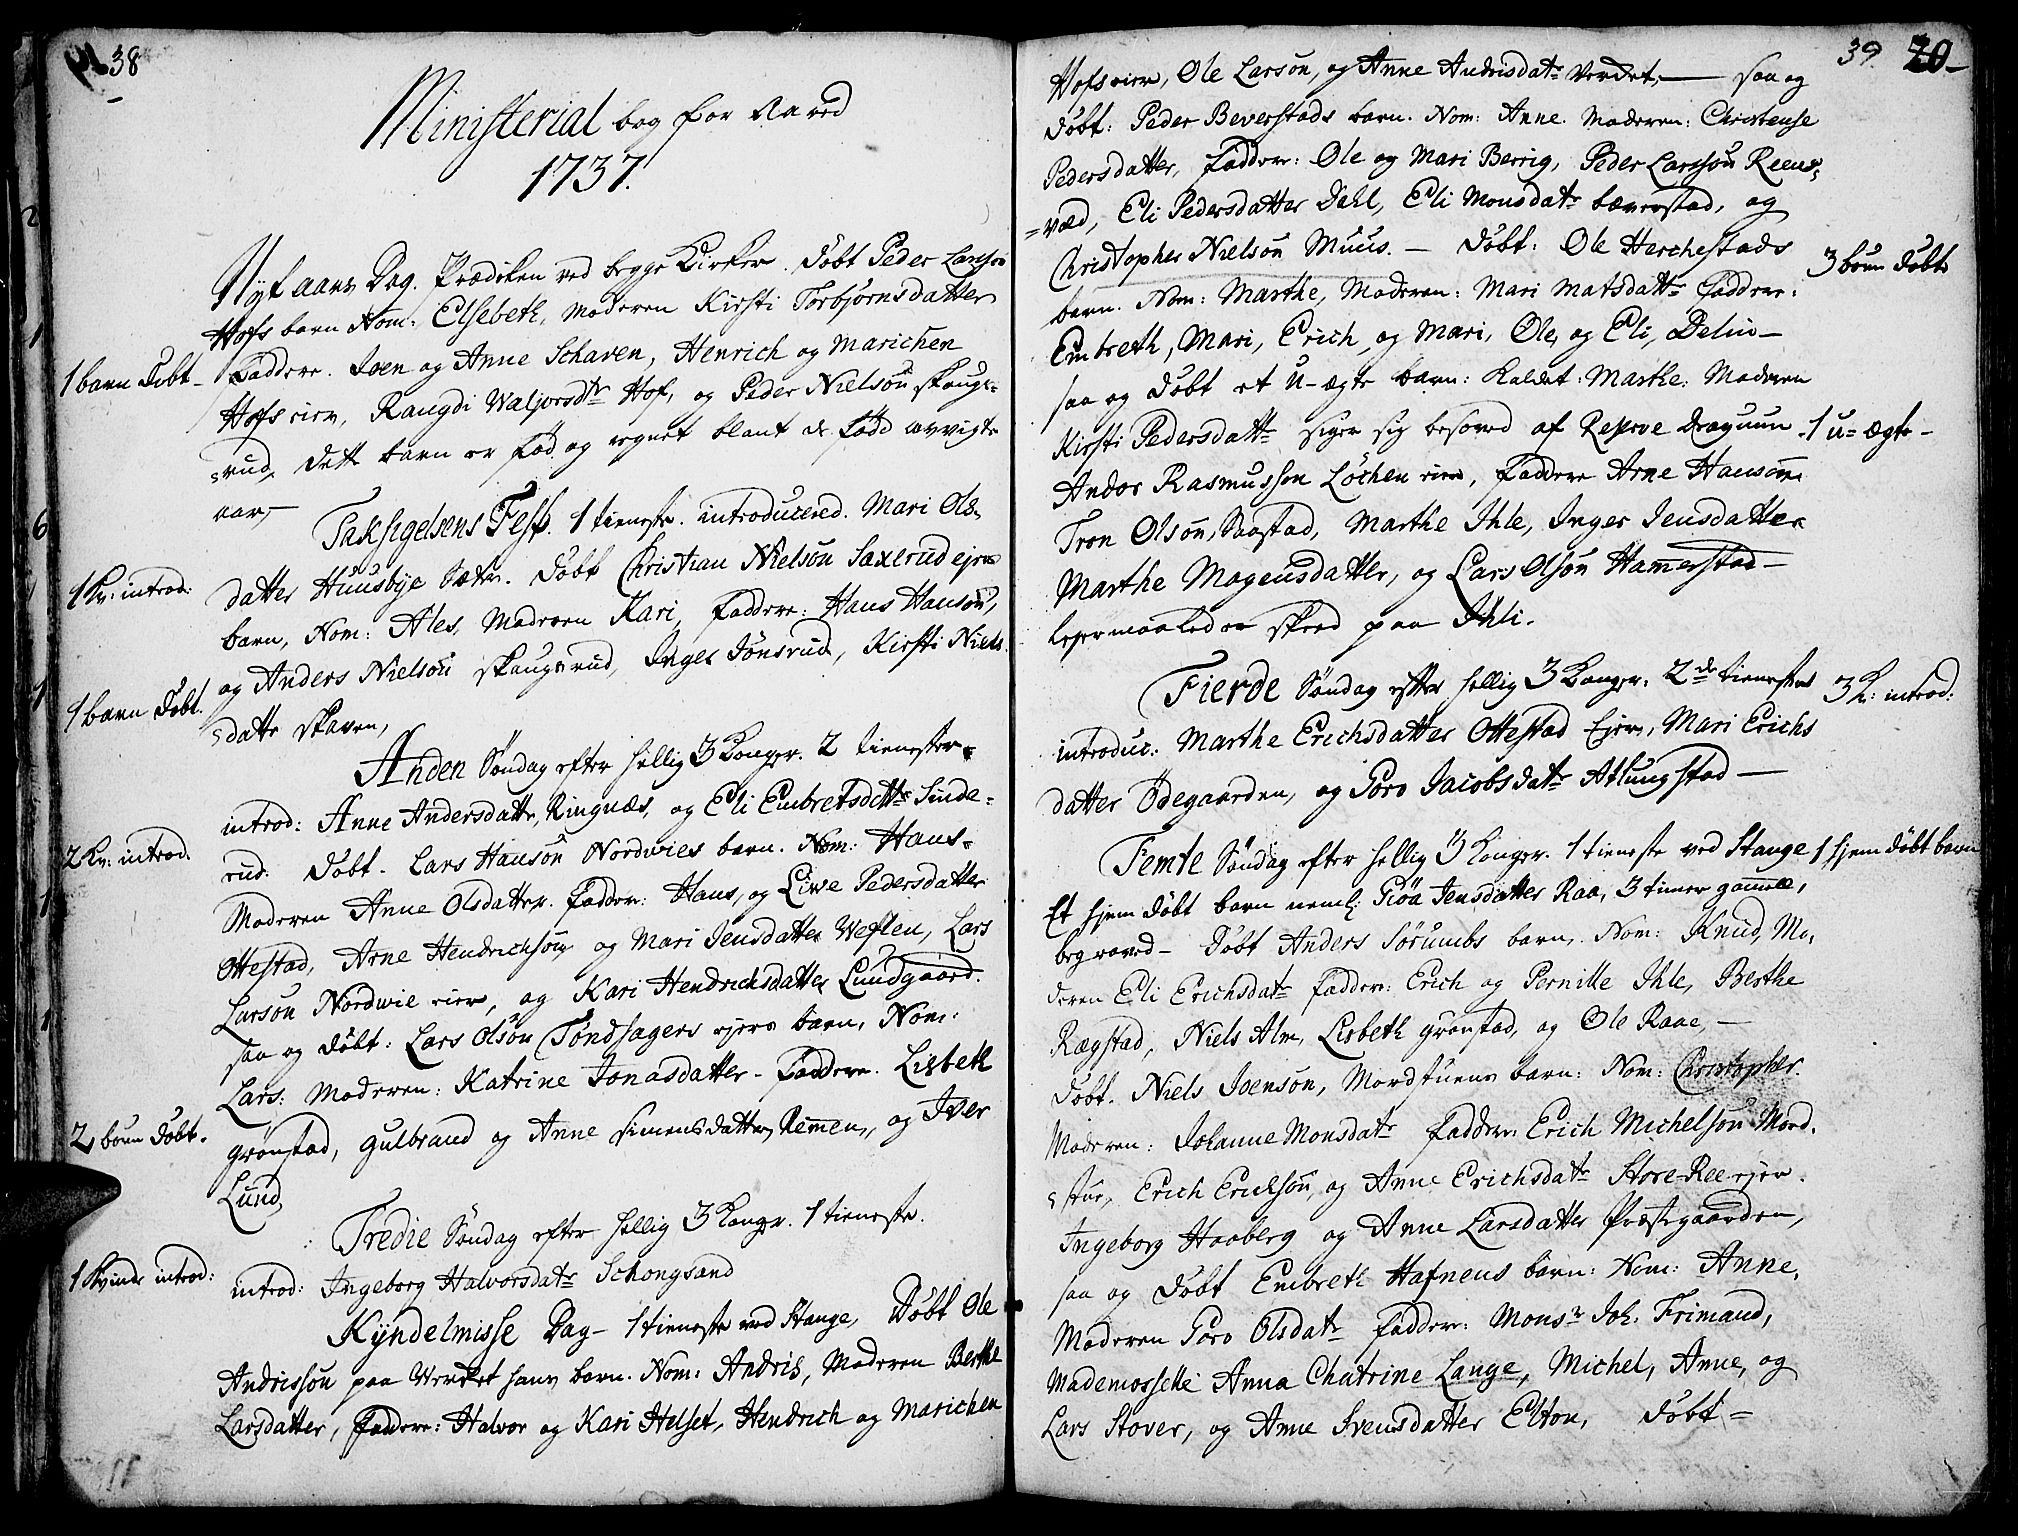 38
Ministerial bog for Aared
1737.
Nyt aars Dag. Prædiken ved begge Kirker. døbt Peder Larsøn
Hofs barn Nom: Elsebeth, moderen Kirsti Torbjørnsdatter
1 barn døbt - Faddere. Joen og Anne Schaven, Henrich og Marichen
Hofs eier, Rangdi Waljorsdtr Hof, og Peder Nielsøn skaugs=
=rud, dette barn er fød og regnet blant de fødde avvigte
aar,-
Taksigelsens Fest. 1 tieneste. introducered. Mari Ols=
1 Kv: introd: datter Huusbye Sætr. døbt Christian Nielsøn Saxlrud ejers
barn, Nom: Ales, Moderen Kari, faddere: Hans Hansøn,
og Anders Nielsøn skaugsrud, Inger Jønsrud, Kirsti Niels
1 barn døbt. =datter skaven,
Anden Søndag efter hellig 3 Konger. 2 tienester.
introd: Anne Andersdatter, Ringnæs, og Eli Embretsdatter Sinde=
2 Kv: introd. rud. døbt. Lars Hansøn Nordwies barn. Nom: Hans.
Moderen Anne Olsdatter. faddere: Hans, og Liwe Pedersdatter
Ottestad, Arne Hendrichsøn og Mari Jensdatter Weflen, Lars
Larsøn Nordwie eier, og Kari Hendrichsdatter Lundgaard.
saa og døbt: Lars Olsøn Tøndhagers ejers barn, Nom:
Lars: Moderen: Katrine Jonasdatter - Faddere. Lisbeth
2 børn døbt. Grønstad, Gulbrand og Anne Simensdatter Remen, og Iver
Lund,
Tredie Søndag efter hellig 3 Konger. 1 tieneste.
1 Kvinde introd: introd: Ingeborg Halvorsdatr Schongsand
Kyndelmisse Dag - 1 tieneste ved Stange, Døbt Ole
Andrissøn paa Verket hans barn. Nom: Andris, Moderen Berthe
Larsdatter, faddere: Halvor og Kari Helset, Hendrich og Marichen
39 20-
Hofs eier, Ole Larsøn, og Anne Andrisdatr Verket,— saa og
døbt: Peder Beverstads barn. Nom: Anne. Moderen: Christense
Pedersdatter, faddere: Ole og Mari Berrig, Peder Larssøn Reens=
=wæd, Eli Pedersdatter Dahl, Eli Monsdatr bæverstad, og
Christopher Nielsøn Muus. - døbt: Ole Herchestads 3 børn døbt
barn. Nom: Marthe, Moderen: Mari Matsdattr Faddere:
Embreth, Mari, Erich, og Mari, Ole, og Eli, Delin-
saa og døbt et u-ægte barn: kaldet: Marthe: Moderen
Kirsti Pedersdatter siger sig besovet af Reserve Dragoun 1 u=ægte-
Andor Rasmussøn Løchen eier, faddere Arne Hansøn
Tron Olsøn, Saastad, Marthe Ihle, Inger Jensdatter
Marthe Mogensdatter, og Lars Olsøn Hamerstad-
lejermaaled er skeed paa Ihli.
Fierde Søndag efter hellig 3 Konger. 2de tienester 3 K: introd:
introduc: Marthe Erichsdatter Ottestad Ejer, Mari Erichs
datter Ødegaarden, og Goro Jacobsdatr Atlungstad—
Femte Søndag efter hellig 3 Konger. 1 tieneste ved Stange 1 hjem døbt barn
Et hjem døbt barn neml: Giøa Jensdatter Raa, 3 timer gamel,
begraved - døbt Anders Sørumbs barn, Nom: Knud, Mo=
deren Eli Erichsdatr faddere: Erich og Pernille Ihle, Berthe
Rægstad, Niels Alm, Lisbeth Grønstad, og Ole Raae, -
døbt. Niels Joensøn, Mordstuens barn: Nom: Christopher.
Moderen: Johanne Monsdatr faddere Erich Michelsøn Mord=
=stue, Erich Erichsøn, og Anne Erichsdatr Store-Ree ejer.
Ingeborg Haaberg og Anne Larsdatter Præstegaarden,
saa og døbt Embreth Hafnens barn: Nom: Anne,
Moderen Goro Olsdatr faddere: Monsr Joh. Frimand,
Mademosselle Anna Chatrine Lange, Michel, Anne, og
Lars Stover, og Anne Svensdatter Elton, døbt=